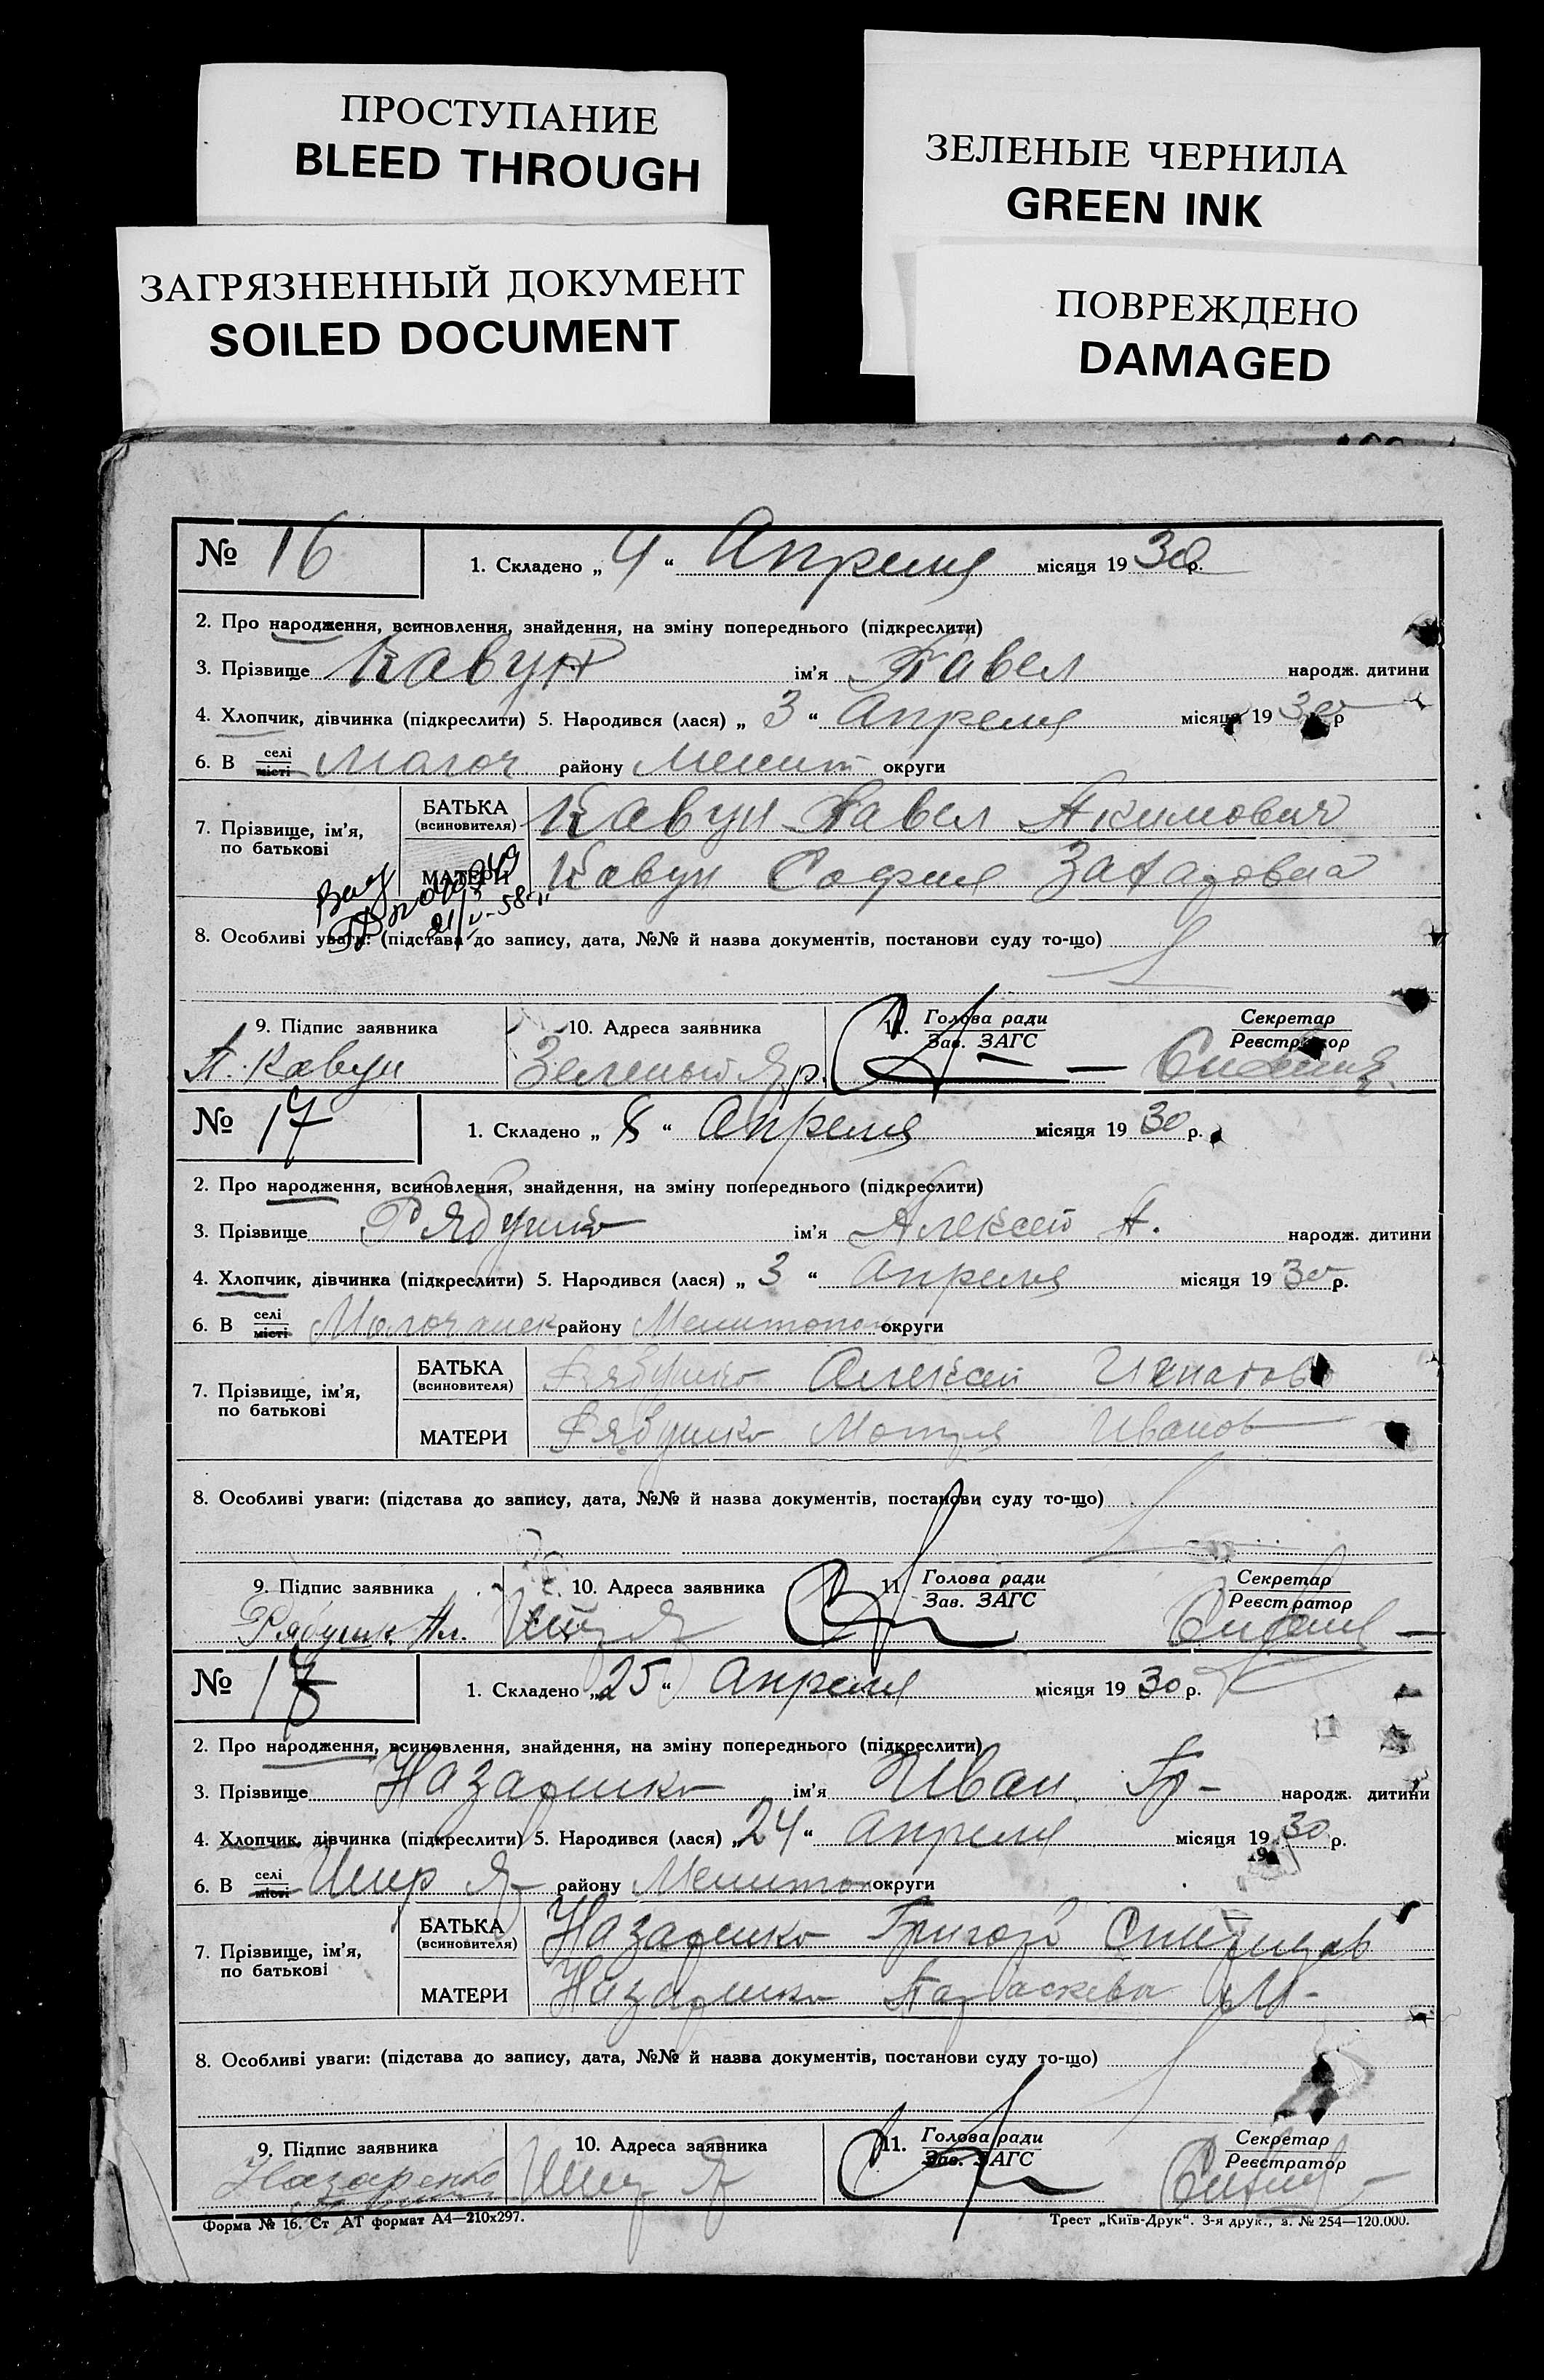 ПРОСТУПАНИЕ
BLEED THROUGH
ЗЕЛЕНЫЕ ЧЕРНИЛА
GREEN INK
ЗАГРЯЗНЕННЫЙ ДОКУМЕНТ
SOILED DOCUMENT
ПОВРЕЖДЕНО
DAMAGED
№ 16 1. Складено „ 4 “ Апреля місяця 19 30 р.
2. Про народження, всиновлення, знайдення, на зміну попереднього (підкреслити)
3. Прізвище Кавун ім'я Павел народж. дитини
4. Хлопчик, дівчинка (підкреслити) 5. Народився (лася) „ 3 “ Апреля місяця 19 30 р
6. В селі місті Молоч району Мелит округи
7. Прізвище, ім'я, по батькові БАТЬКА (всиновителя) Кавун Павел Акимович
МАТЕРИ Кавун София
8. Особливі уваги: (підстава до запису, дата, №№ й назва документів, постанови суду то-що)
9. Підпис заявника 10. Адреса заявника 11. Голова ради Зав. ЗАГС Секретар Реєстратор
П. Кавун Зеленый Яр.
№ 17 1. Складено „ 8 “ Апреля місяця 19 30 р.
2. Про народження, всиновлення, знайдення, на зміну попереднього (підкреслити)
3. Прізвище Рябушко ім'я Алексей А. народж. дитини
4. Хлопчик, дівчинка (підкреслити) 5. Народився (лася) „ 3 “ Апреля місяця 19 30 р.
6. В селі місті Молочанск району Мелитопол округи
7. Прізвище, ім'я, по батькові БАТЬКА (всиновителя) Рябушко Алексей
МАТЕРИ Рябушко Мотря Иванов
8. Особливі уваги: (підстава до запису, дата, №№ й назва документів, постанови суду то-що)
9. Підпис заявника 10. Адреса заявника 11. Голова ради Зав. ЗАГС Секретар Реєстратор
Рябушк Ал.
№ 18 1. Складено „ 25 “ Апреля місяця 19 30 р.
2. Про народження, всиновлення, знайдення, на зміну попереднього (підкреслити)
3. Прізвище Назаренко ім'я Иван Гр- народж. дитини
4. Хлопчик, дівчинка (підкреслити) 5. Народився (лася) „ 24 “ Апреля місяця 19 30 р.
6. В селі місті Шир Я- району Мелитоп округи
7. Прізвище, ім'я, по батькові БАТЬКА (всиновителя) Назаренко Григор Спиридов
МАТЕРИ Назаренко Параскева И-
8. Особливі уваги: (підстава до запису, дата, №№ й назва документів, постанови суду то-що)
9. Підпис заявника 10. Адреса заявника 11. Голова ради Зав. ЗАГС Секретар Реєстратор
Назаренко Шир Я
Форма № 16. Ст АТ формат А4—210х297. Трест „Київ-Друк“. 3-я друк., з. № 254—120.000.